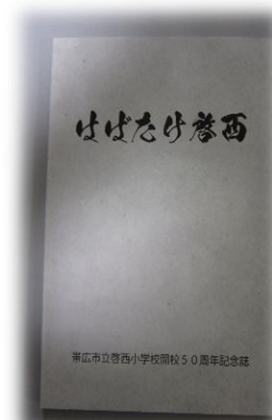 はばたけ啓西
帯広市立啓西小学校開校50周年記念誌